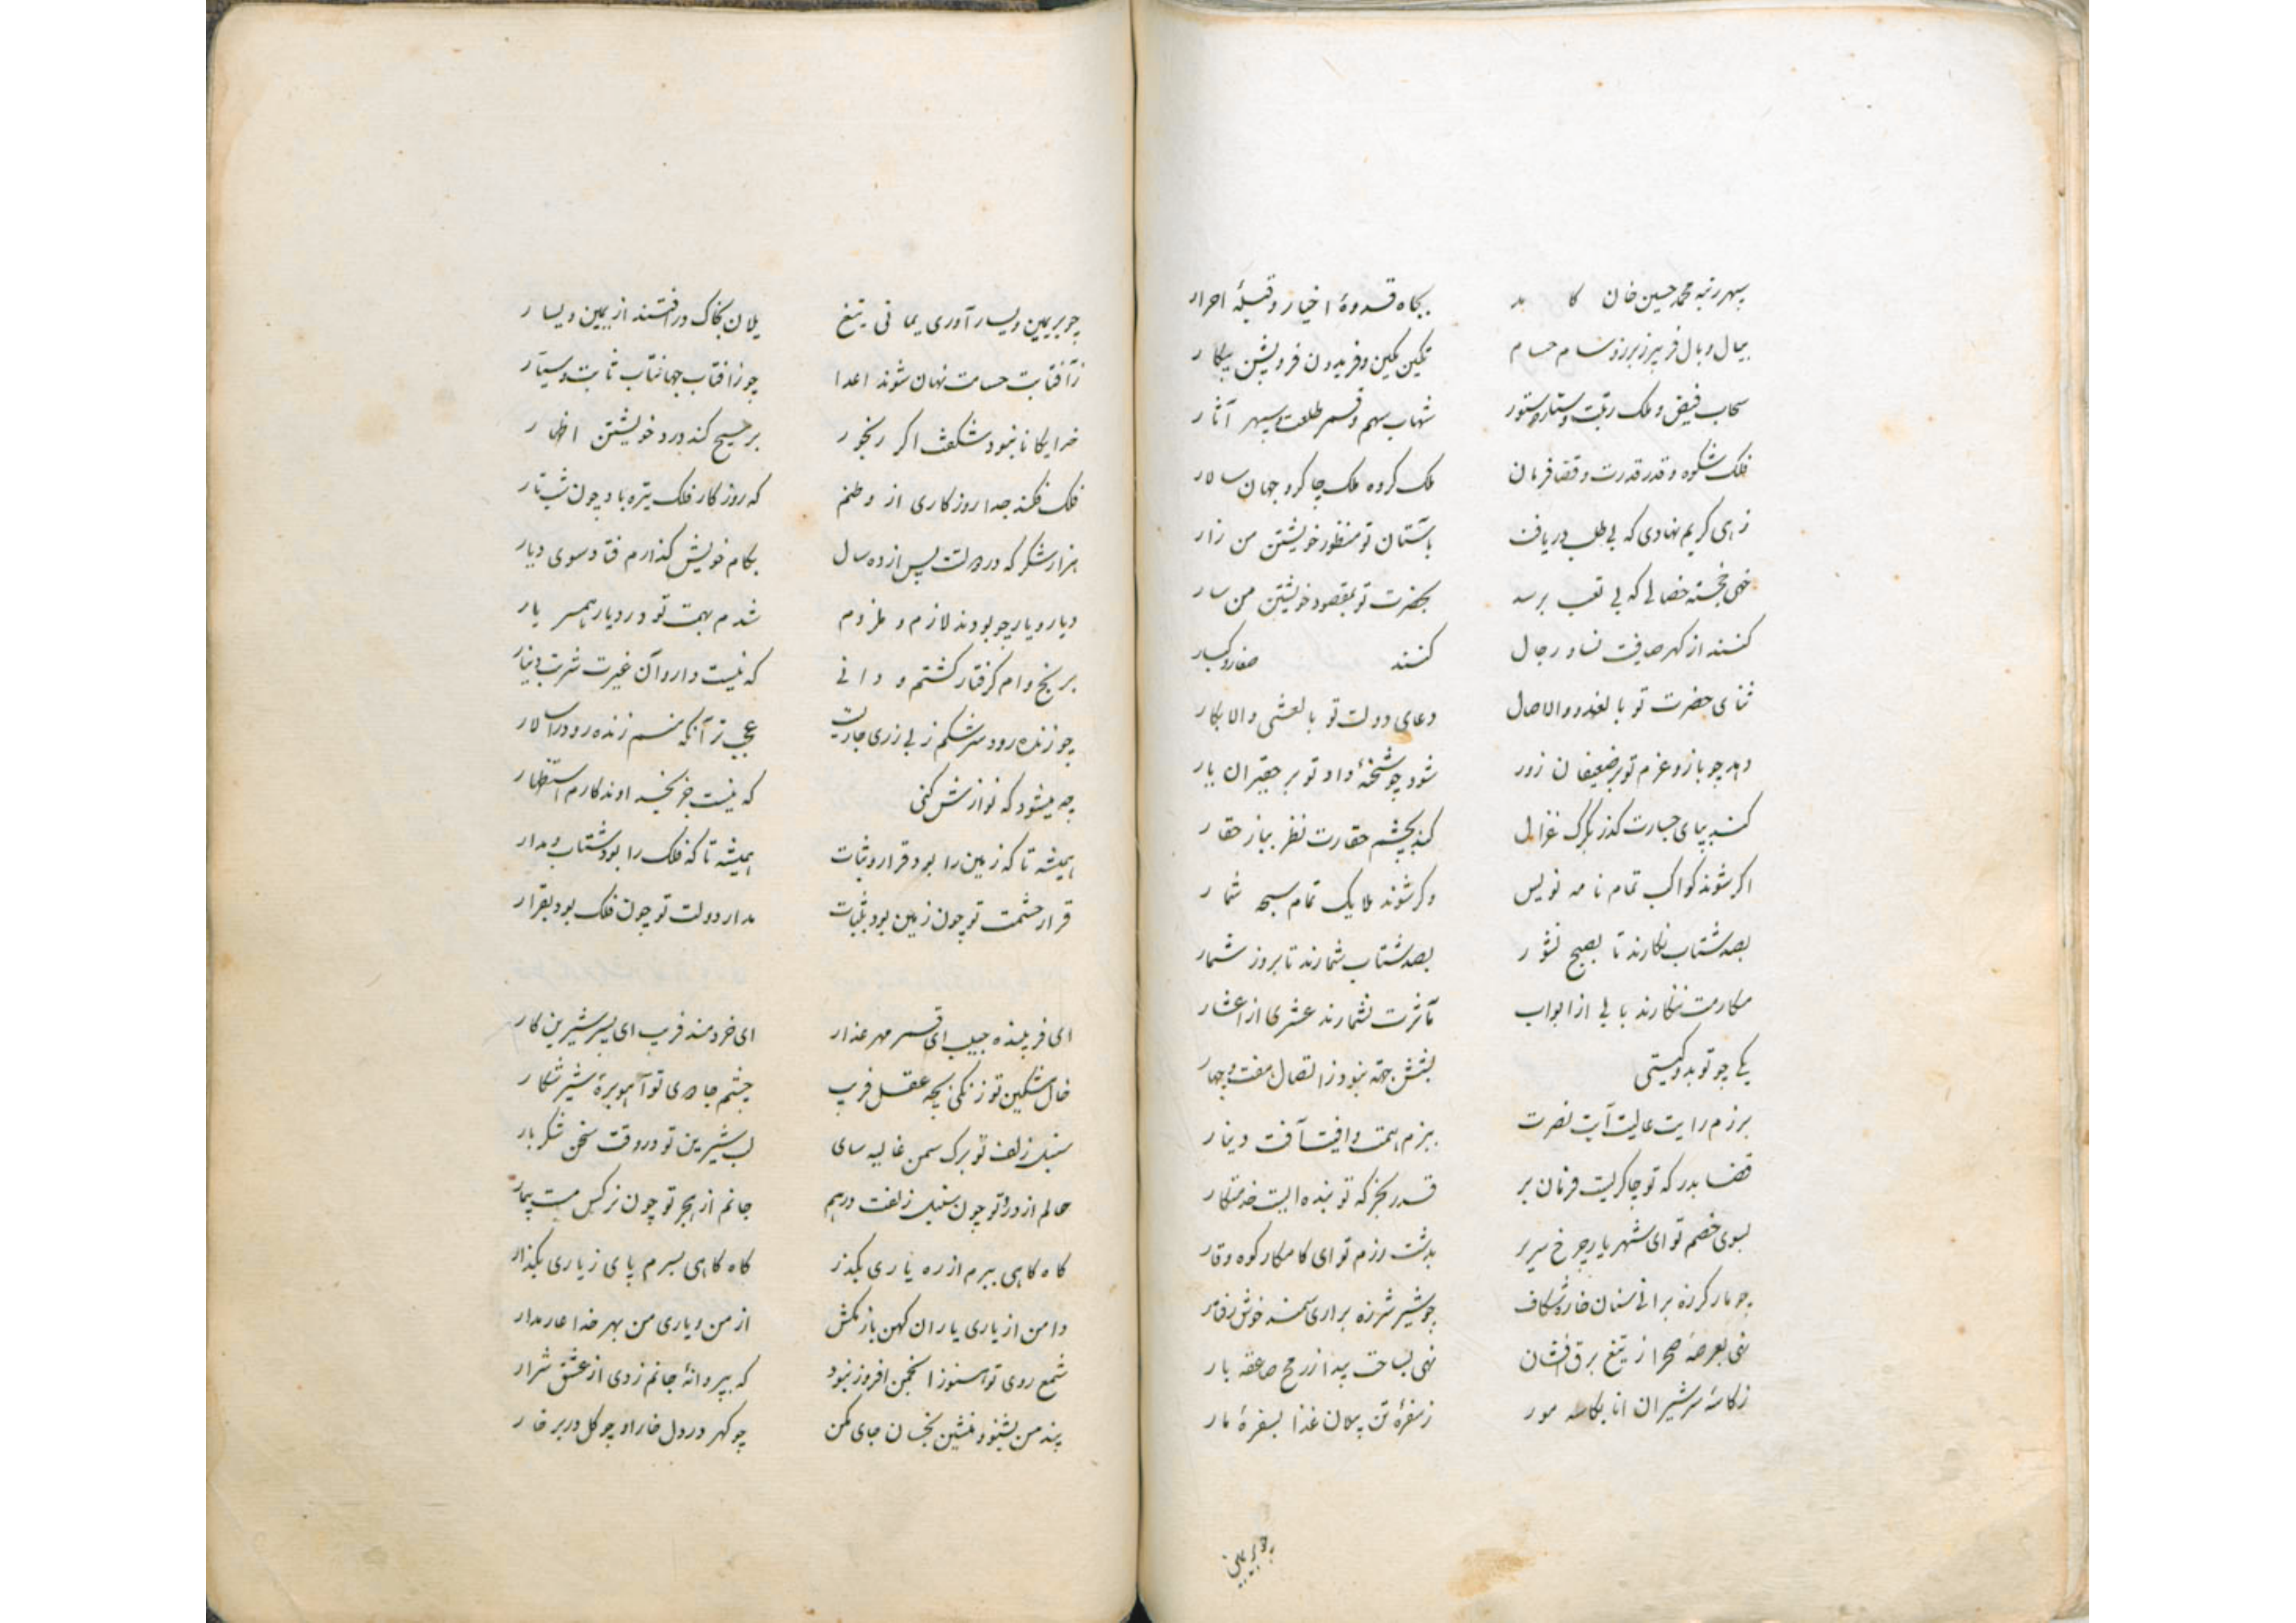 سپهر رتبه محمد حسین خان کا بد بجاه قدوهٔ اخیار و قبلهٔ احرار
بیال و بال فریبرز برز و سام حسام تکین تکین و فریدون فر و پشن پیکار
سحاب فیض و ملک رتبت و ستاره ستور شهاب سهم و قمر طلعت و سپهر آثار
فلک شکوه و قدر قدرت و قضا فرمان ملک کروه ملک چاکر و جهان سالار
زهی کریم نهادی که بی طلب دریافت باستان تو منظور خویشتن من زار
خهی خجسته خصالی که بی تعب برسد بحضرت تو بمقصود خویشتن من سار
کنند از کهر صافیت نساء و رجال کنند صغار و کبار
ثنای حضرت تو بالغدو والاصال دعای دولت تو بالعشی والابکار
دهد چو بازو عزم تو بر ضعیفان زور شود چو شحنهٔ داد تو بر حقیران یار
کند بپای جسارت کذر بکرک غزال کند بچشم حقارت نظر بباز حقار
اکر شوند کواکب تمام نامه نویس وکر شوند ملایک تمام سبحه شمار
بصد شتاب نکارند تا بصبح نشور بصد شتاب شمارند تا بروز شمار
مکارمت ننکارند بابی از ابواب مآثرت نشمارند عشری از اعشار
یکی چو تو بدو کیتی بشش جهة نبود ز اتصال هفت و چهار
برزم رایت عالیت آیت نصرت ببزم همت وافیت آفت دینار
قضا بدر که تو چاکریت فرمان بر قدر بجز که تو بنده ایت خدمتکار
بسوی خصم تو ای شهریار چرخ سریر بدشت رزم تو ای کامکار کوه وقار
چو مار کرزه برانی سنان خاره شکاف چو شیر شرزه براری سمند خوش رفتار
نهی بعرصهٔ صحرا ز تیغ برق افشان نهی بساحت بیدا ز رمح صاعقه بار
ز کاسهٔ سر شیران انا بکاسه مور ز سفرهٔ تن پیکان غذا بسفرهٔ مار
چو بر یمین
چو بر یمین و یسار آوری یمانی تیغ یلان بخاک در افتند از یمین و یسار
ز آفتاب حسامت نهان شوند اعدا چو ز آفتاب جهانتاب ثابت و سیار
خدایکانا نبود شکفت اکر رنجور بر مسیح کند درد خویشتن اظهار
فلک فکند جدا روزکاری از وطنم که روزکار فلک تیره باد چون شب تار
هزار شکر که در دولتت پس از ده سال بکام خویش کذارم فتاد سوی دیار
دیار و یار چو بودند لازم و ملزوم شدم بهمت تو در دیار همسر یار
برنج وام کرفتار کشتم و دانی که نیست داروآن غیرت شربت دینار
چو زنده رود سرشکم ز بی زری جاریست عجب تر آنکه منم زنده رود را سالار
چه میشود که نوازش کنی که نیست جز بخداوند کارم استظهار
همیشه تا که زمین را بود قرار و ثبات همیشه تا که فلک را بود شتاب و مدار
قرار حشمت تو چون زمین بود بثبات مدار دولت تو چون فلک بود بقرار
ای فریبنده حبیب ای قمر مهر عذار ای خردمند فریب ای پسر شیرین کار
خال مشکین تو زنکی بچه عقل فریب چشم جادی تو آهو برهٔ شیر شکار
سنبل زلف تو برک سمن غالیه سای لب شیرین تو در وقت سخن شکر بار
حالم از درد تو چون سنبل زلفت درهم جانم از هجر تو چون نرکس مست بیمار
کاه کاهی ببرم از ره یاری بکذر کاه کاهی بسرم پای ز یاری بکذار
دامن از یاری یاران کهن باز مکش از من و یاری من بهر خدا عار مدار
شمع روی تو هنوز انجمن افروز نبود که بپروانهٔ جانم زدی از عشق شرار
پند من بشنو و منشین بخسان جای مکن چو کهر در دل خارا و چو کل در بر خار